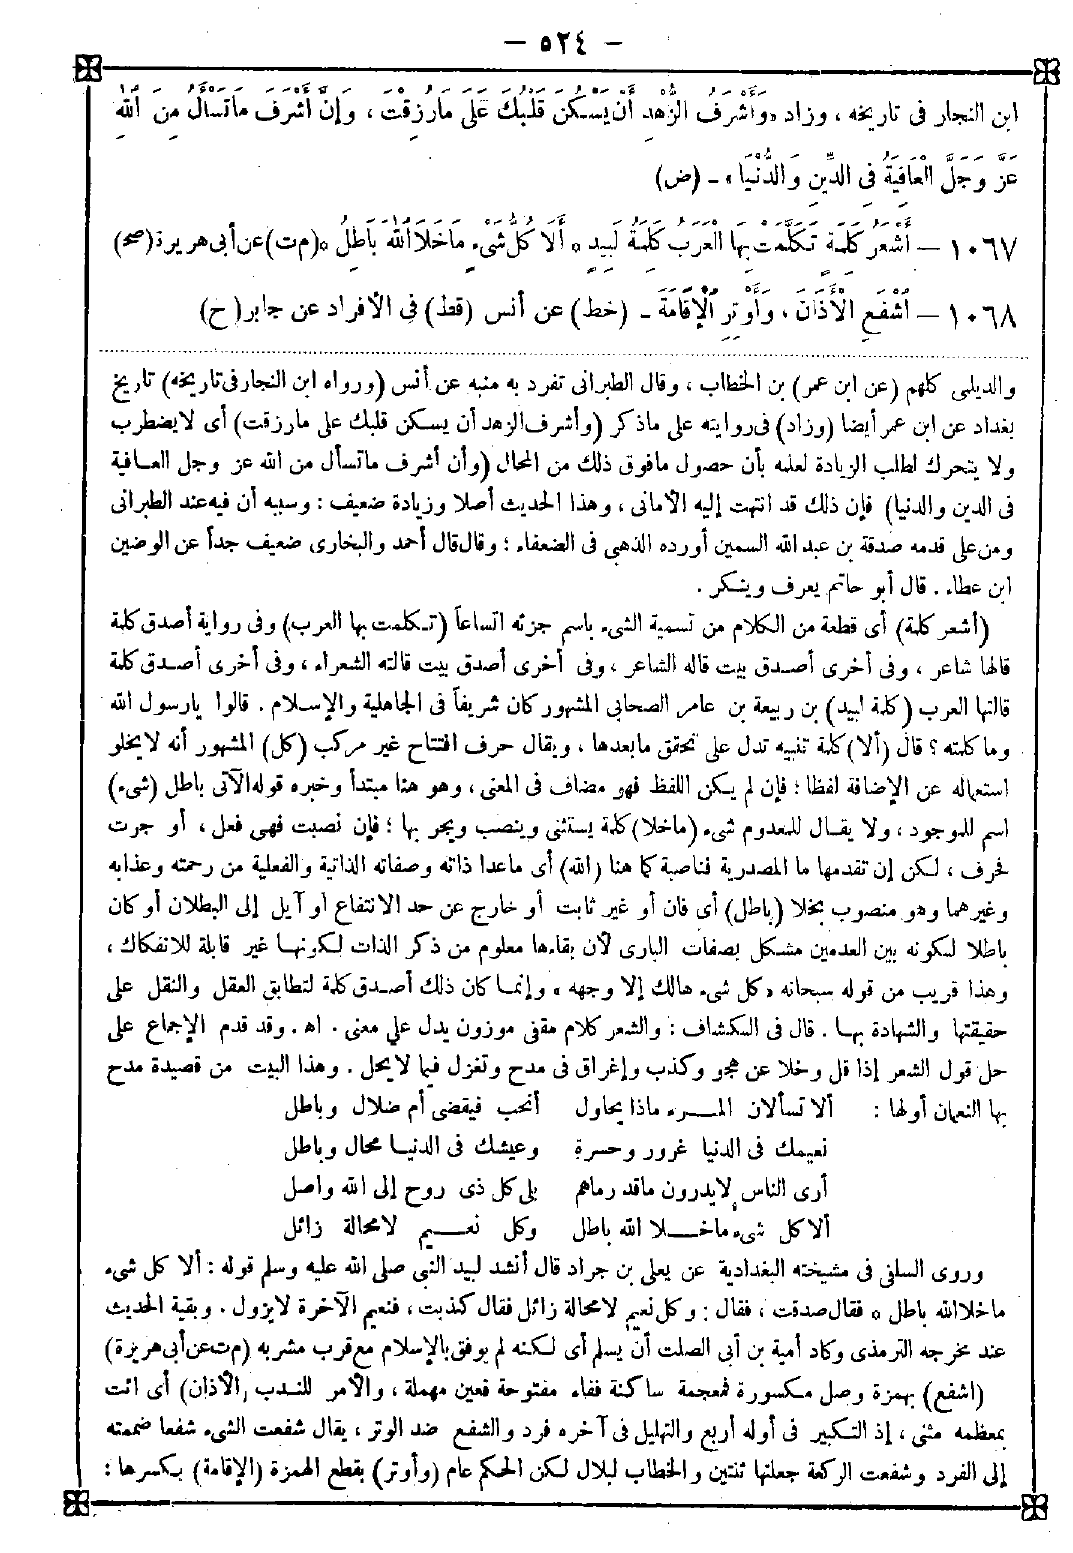 — ٥٢٤ —
ابن النجار فى تاريخه ، وزاد «وَأَشْرَفُ الزُّهْدِ أَنْ يَسْكُنَ قَلْبُكَ عَلَى مَا رُزِقْتَ ، وَإِنَّ أَشْرَفَ مَا تَسْأَلُ مِنَ اللّٰهِ
عَزَّ وَجَلَّ الْعَافِيَةُ فِى الدِّينِ وَالدُّنْيَا» ـ (ض)
١٠٦٧ — أَشْعَرُ كَلِمَةٍ تَكَلَّمَتْ بِهَا الْعَرَبُ كَلِمَةُ لَبِيدٍ * أَلَا كُلُّ شَىْءٍ مَا خَلَا اللّٰهَ بَاطِلُ * (م ت) عن أبى هريرة (صح)
١٠٦٨ — اشْفَعِ الْأَذَانَ ، وَأَوْتِرِ الْإِقَامَةَ ـ (خط) عن أنس (قط) فى الأفراد عن جابر (ح)
والديلمى كلهم (عن ابن عمر) بن الخطاب ، وقال الطبرانى تفرد به منبه عن أنس (ورواه ابن النجار فى تاريخه) تاريخ
بغداد عن ابن عمر أيضا (وزاد) فى روايته على ماذكر (وأشرف الزهد أن يسكن قلبك على مارزقت) أى لايضطرب
ولا يتحرك لطلب الزيادة لعلمه بأن حصول مافوق ذلك من المحال (وأن أشرف ماتسأل من الله عز وجل العافية
فى الدين والدنيا) فإن ذلك قد انتهت إليه الأمانى ، وهذا الحديث أصلا وزيادة ضعيف : وسببه أن فيه عند الطبرانى
ومن على قدمه صدقة بن عبد الله السمين أورده الذهبى فى الضعفاء ؛ وقال قال أحمد والبخارى ضعيف جداً عن الوضين
ابن عطاء . قال أبو حاتم يعرف وينكر .
(أشعر كلمة) أى قطعة من الكلام من تسمية الشىء باسم جزئه اتساعاً (تكلمت بها العرب) وفى رواية أصدق كلمة
قالها شاعر ، وفى أخرى أصدق بيت قاله الشاعر ، وفى أخرى أصدق بيت قالته الشعراء ، وفى أخرى أصدق كلمة
قالتها العرب (كلمة لبيد) بن ربيعة بن عامر الصحابى المشهور كان شريفاً فى الجاهلية والإسلام . قالوا يارسول الله
وما كلمته ؟ قال (ألا) كلمة تنبيه تدل على تحقق مابعدها ، ويقال حرف افتتاح غير مركب (كل) المشهور أنه لايخلو
استعماله عن الإضافة لفظا ؛ فإن لم يكن اللفظ فهو مضاف فى المعنى ، وهو هنا مبتدأ وخبره قوله الآتى باطل (شىء)
اسم للموجود ، ولا يقال للمعدوم شىء (ماخلا) كلمة يستثنى وينصب ويجر بها ؛ فإن نصبت فهى فعل ، أو جرت
فحرف ، لكن إن تقدمها ما المصدرية فناصبة كما هنا (الله) أى ماعدا ذاته وصفاته الذاتية والفعلية من رحمته وعذابه
وغيرهما وهو منصوب بخلا (باطل) أى فان أو غير ثابت أو خارج عن حد الانتفاع أو آيل إلى البطلان أو كان
باطلا لكونه بين العدمين مشكل بصفات البارى لأن بقاءها معلوم من ذكر الذات لكونها غير قابلة للانفكاك ،
وهذا قريب من قوله سبحانه «كل شىء هالك إلا وجهه» وإنما كان ذلك أصدق كلمة لتطابق العقل والنقل على
حقيقتها والشهادة بها . قال فى الكشاف : والشعر كلام مقفى موزون يدل على معنى . اهـ . وقد قدم الإجماع على
حل قول الشعر إذا قل وخلا عن هجو وكذب وإغراق فى مدح وتغزل فيما لايحل . وهذا البيت من قصيدة مدح
بها النعمان أولها : ألا تسألان المــرء ماذا يحاول أنحب فيقضى أم ضلال وباطل
نعيمك فى الدنيا غرور وحسرة وعيشك فى الدنيا محال وباطل
أرى الناس لايدرون ماقدر رماهم بلى كل ذى روح إلى الله واصل
ألا كل شىء ماخــلا الله باطل وكل نعــيم لا محالة زائل
وروى السلفى فى مشيخته البغدادية عن يعلى بن جراد قال أنشد لبيد النبى صلى الله عليه وسلم قوله : ألا كل شىء
ماخلا الله باطل * فقال صدقت ، فقال : وكل نعيم لامحالة زائل فقال كذبت ، فنعيم الآخرة لايزول . وبقية الحديث
عند مخرجه الترمذى وكاد أمية بن أبى الصلت أن يسلم أى لكنه لم يوفق بالإسلام مع قرب مشربه (م ت عن أبى هريرة)
(اشفع) بهمزة وصل مكسورة فمعجمة ساكنة ففاء مفتوحة فعين مهملة ، والأمر للندب (الأذان) أى ائت
بمعظمه مثنى ، إذ التكبير فى أوله أربع والتهليل فى آخره فرد والشفع ضد الوتر ، يقال شفعت الشىء شفعا ضممته
إلى الفرد وشفعت الركعة جعلتها ثنتين والخطاب لبلال لكن الحكم عام (وأوتر) بقطع الهمزة (الإقامة) بكسرها :